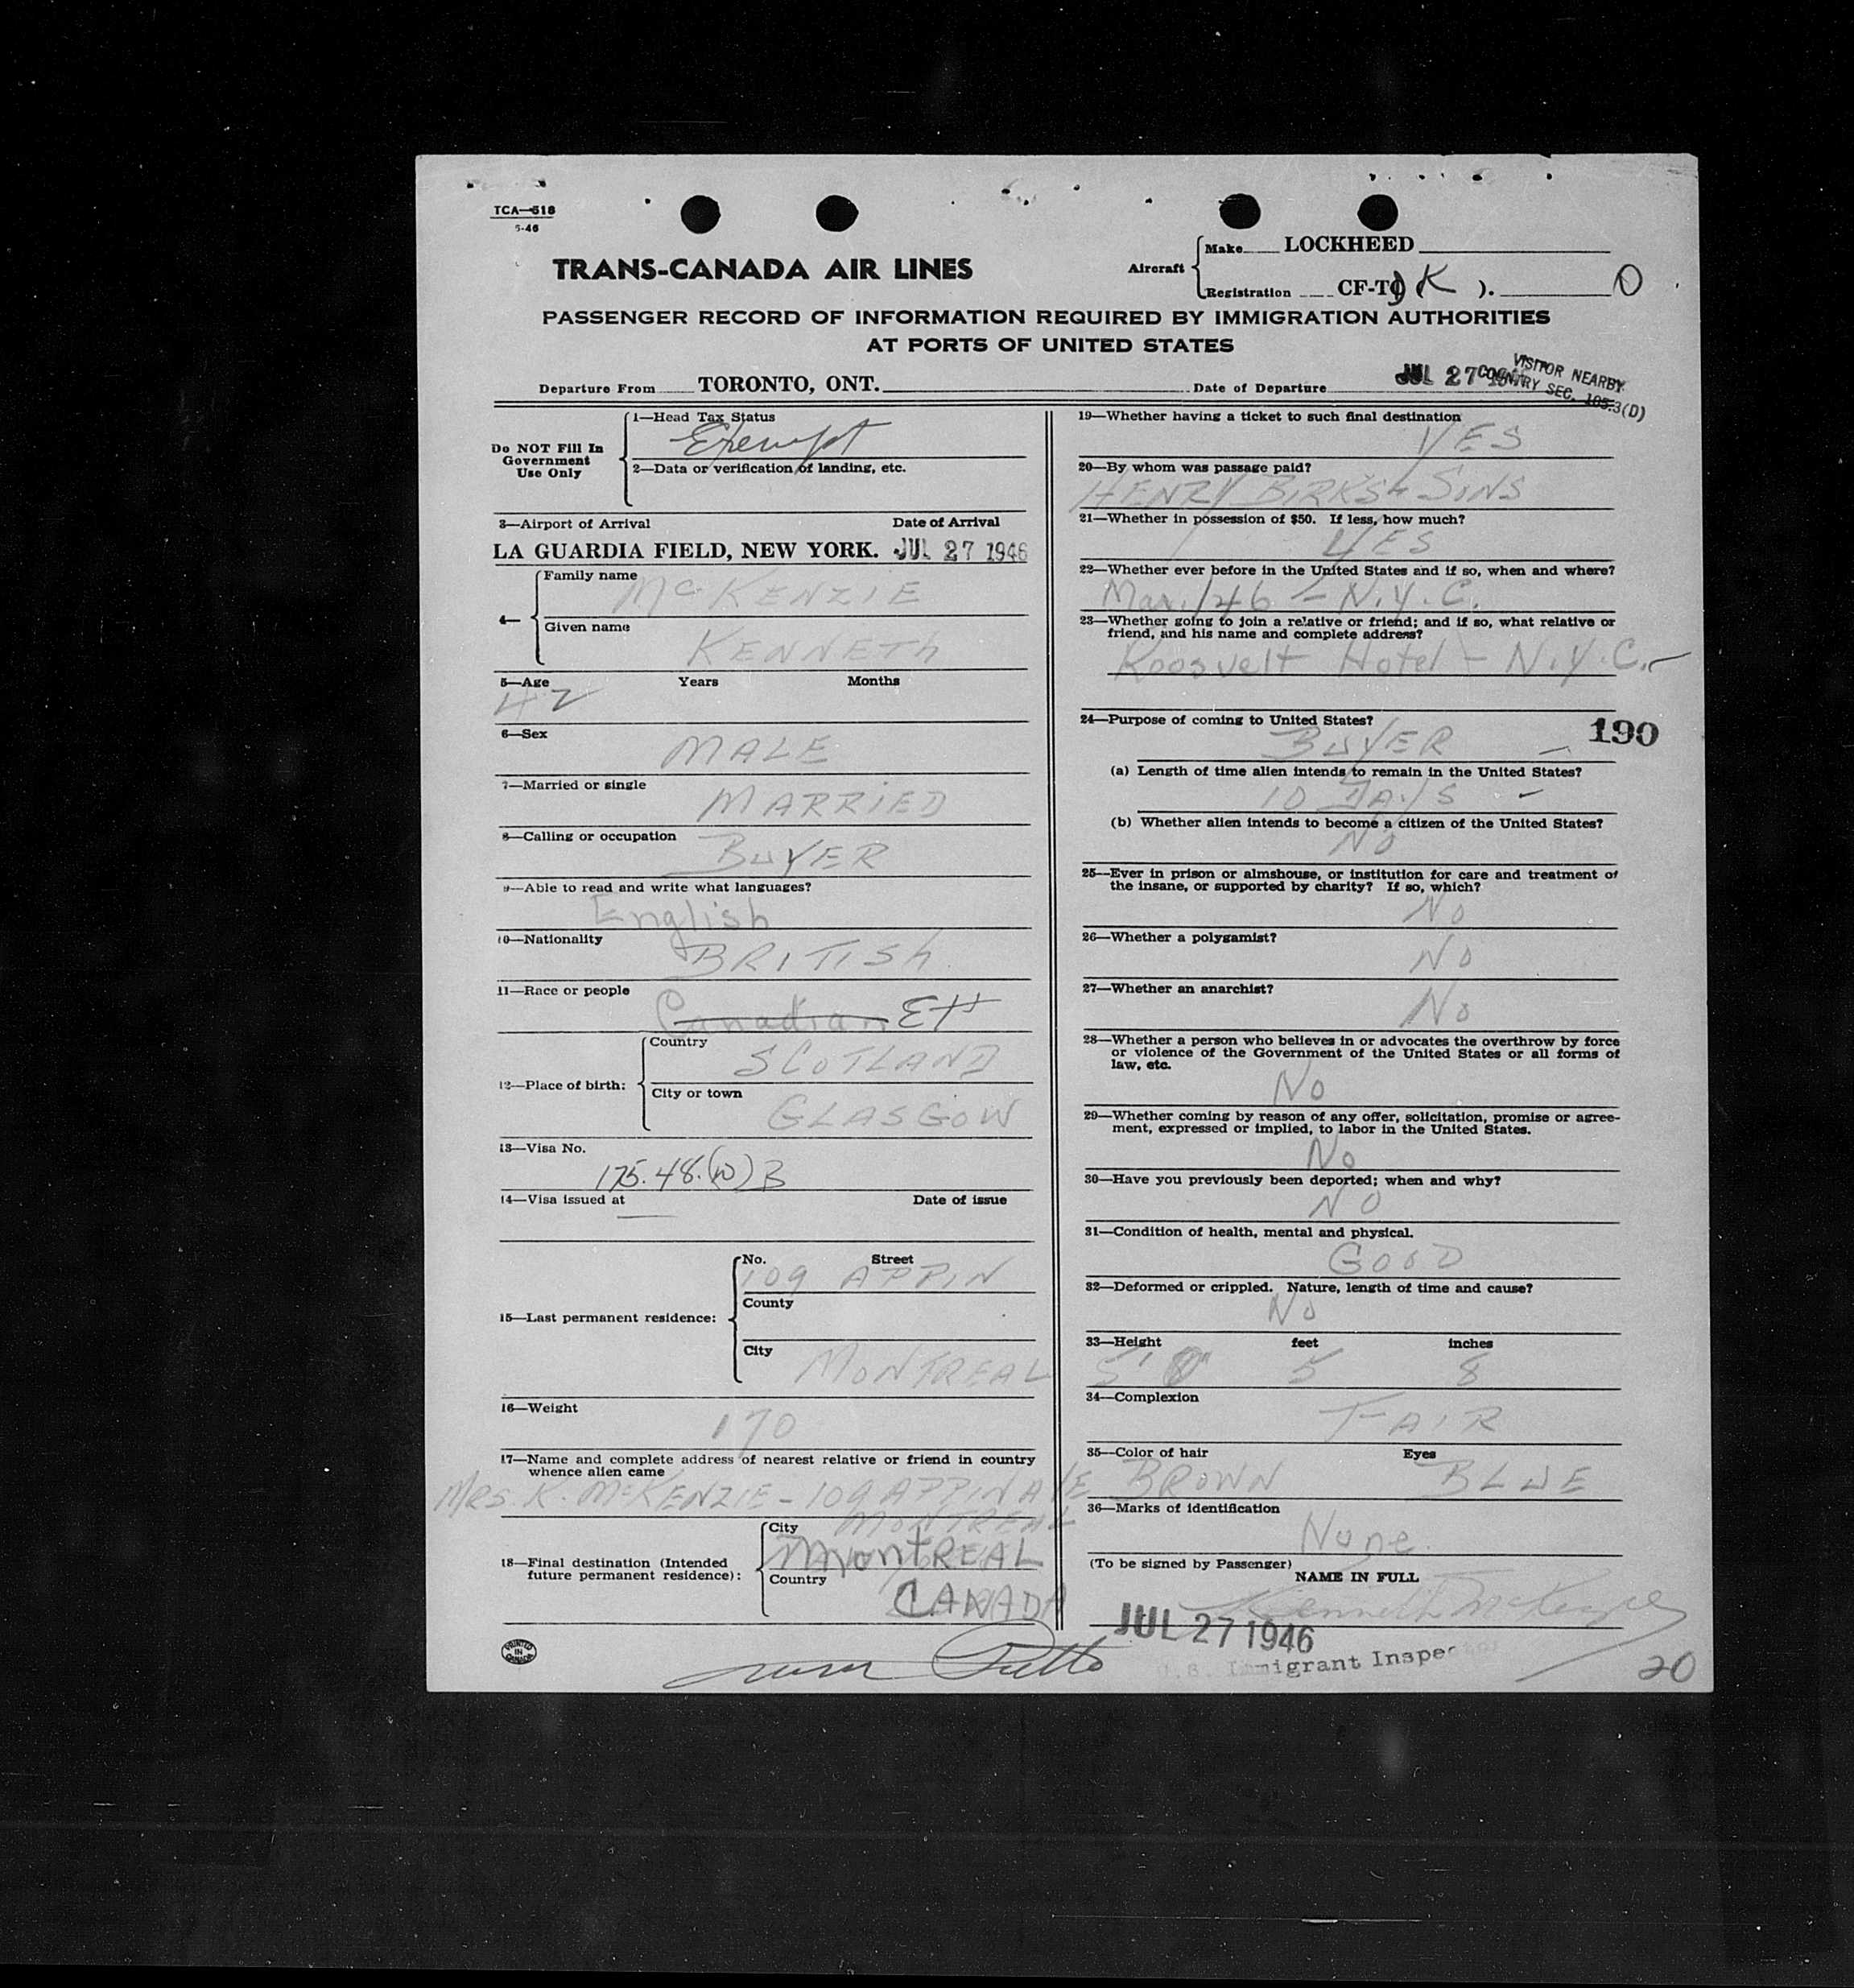 TCA—518
5-46
TRANS-CANADA AIR LINES
Aircraft
Make LOCKHEED
Registration CF-T K ). O
PASSENGER RECORD OF INFORMATION REQUIRED BY IMMIGRATION AUTHORITIES
AT PORTS OF UNITED STATES
Departure From TORONTO, ONT. Date of Departure JUL 27
VISITOR NEARBY
COUNTRY SEC. 165.3(D)
Do NOT Fill In
Government
Use Only
1—Head Tax Status
Exempt
2—Data or verification of landing, etc.
3—Airport of Arrival Date of Arrival
LA GUARDIA FIELD, NEW YORK. JUL 27 1946
4—
Family name
McKENZIE
Given name
KENNETH
5—Age Years Months
42
6—Sex
MALE
7—Married or single
MARRIED
8—Calling or occupation
BUYER
9—Able to read and write what languages?
English
10—Nationality
BRITISH
11—Race or people
Canadian
12—Place of birth:
Country
SCOTLAND
City or town
GLASGOW
13—Visa No.
175.48.(W)B
14—Visa issued at Date of issue
15—Last permanent residence:
No. Street
109 APPIN
County
City
MONTREAL
16—Weight
170
17—Name and complete address of nearest relative or friend in country
whence alien came
MRS. K. McKENZIE - 109 APPIN AVE
MONTREAL
18—Final destination (Intended
future permanent residence):
City
MontREAL
Country
CANADA
PRINTED
IN
CANADA
19—Whether having a ticket to such final destination
YES
20—By whom was passage paid?
HENRY BIRKS & SONS
21—Whether in possession of $50. If less, how much?
YES
22—Whether ever before in the United States and if so, when and where?
Mar./46 - N.Y.C.
23—Whether going to join a relative or friend; and if so, what relative or
friend, and his name and complete address?
Roosvelt Hotel - N.Y.C.
24—Purpose of coming to United States?
190
BUYER
(a) Length of time alien intends to remain in the United States?
10 DAYS
(b) Whether alien intends to become a citizen of the United States?
NO
25—Ever in prison or almshouse, or institution for care and treatment of
the insane, or supported by charity? If so, which?
No
26—Whether a polygamist?
NO
27—Whether an anarchist?
No
28—Whether a person who believes in or advocates the overthrow by force
or violence of the Government of the United States or all forms of
law, etc.
No
29—Whether coming by reason of any offer, solicitation, promise or agree-
ment, expressed or implied, to labor in the United States.
No
30—Have you previously been deported; when and why?
NO
31—Condition of health, mental and physical.
GOOD
32—Deformed or crippled. Nature, length of time and cause?
No
33—Height feet inches
5' 5 8
34—Complexion
FAIR
35—Color of hair Eyes
BROWN BLUE
36—Marks of identification
None.
(To be signed by Passenger)
NAME IN FULL
Kenneth McKenzie
JUL 27 1946
U.S. Immigrant Inspector
20